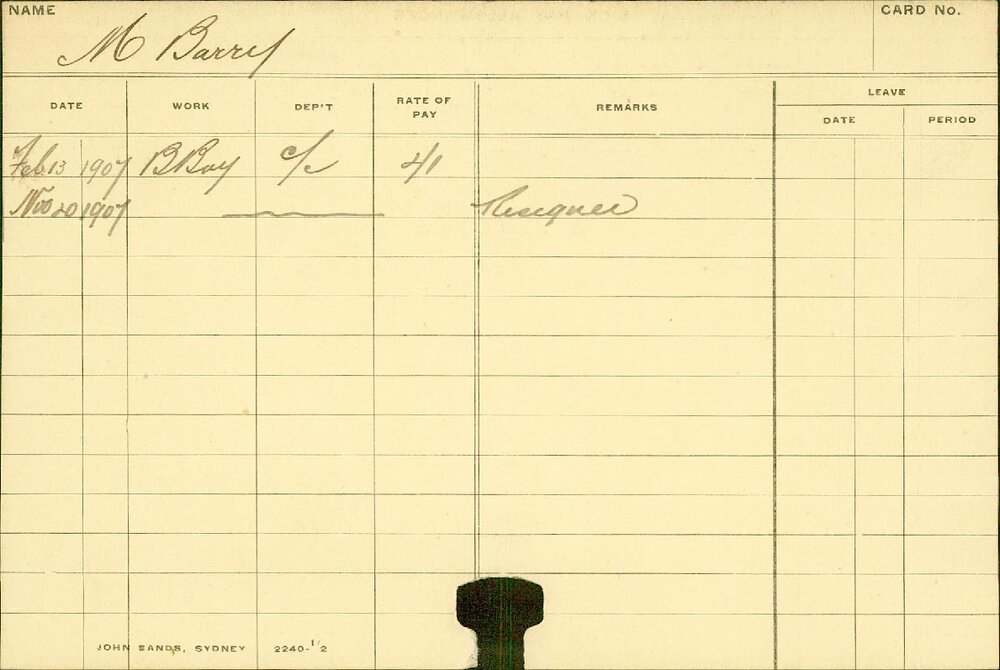 NAME
CARD No.
M Barry
DATE WORK DEP'T RATE OF PAY REMARKS LEAVE
DATE PERIOD
Feb 13 1907 BBoy c/c 4/1
Nov 20 1907 Resigned
JOHN SANDS, SYDNEY 2240-1/2